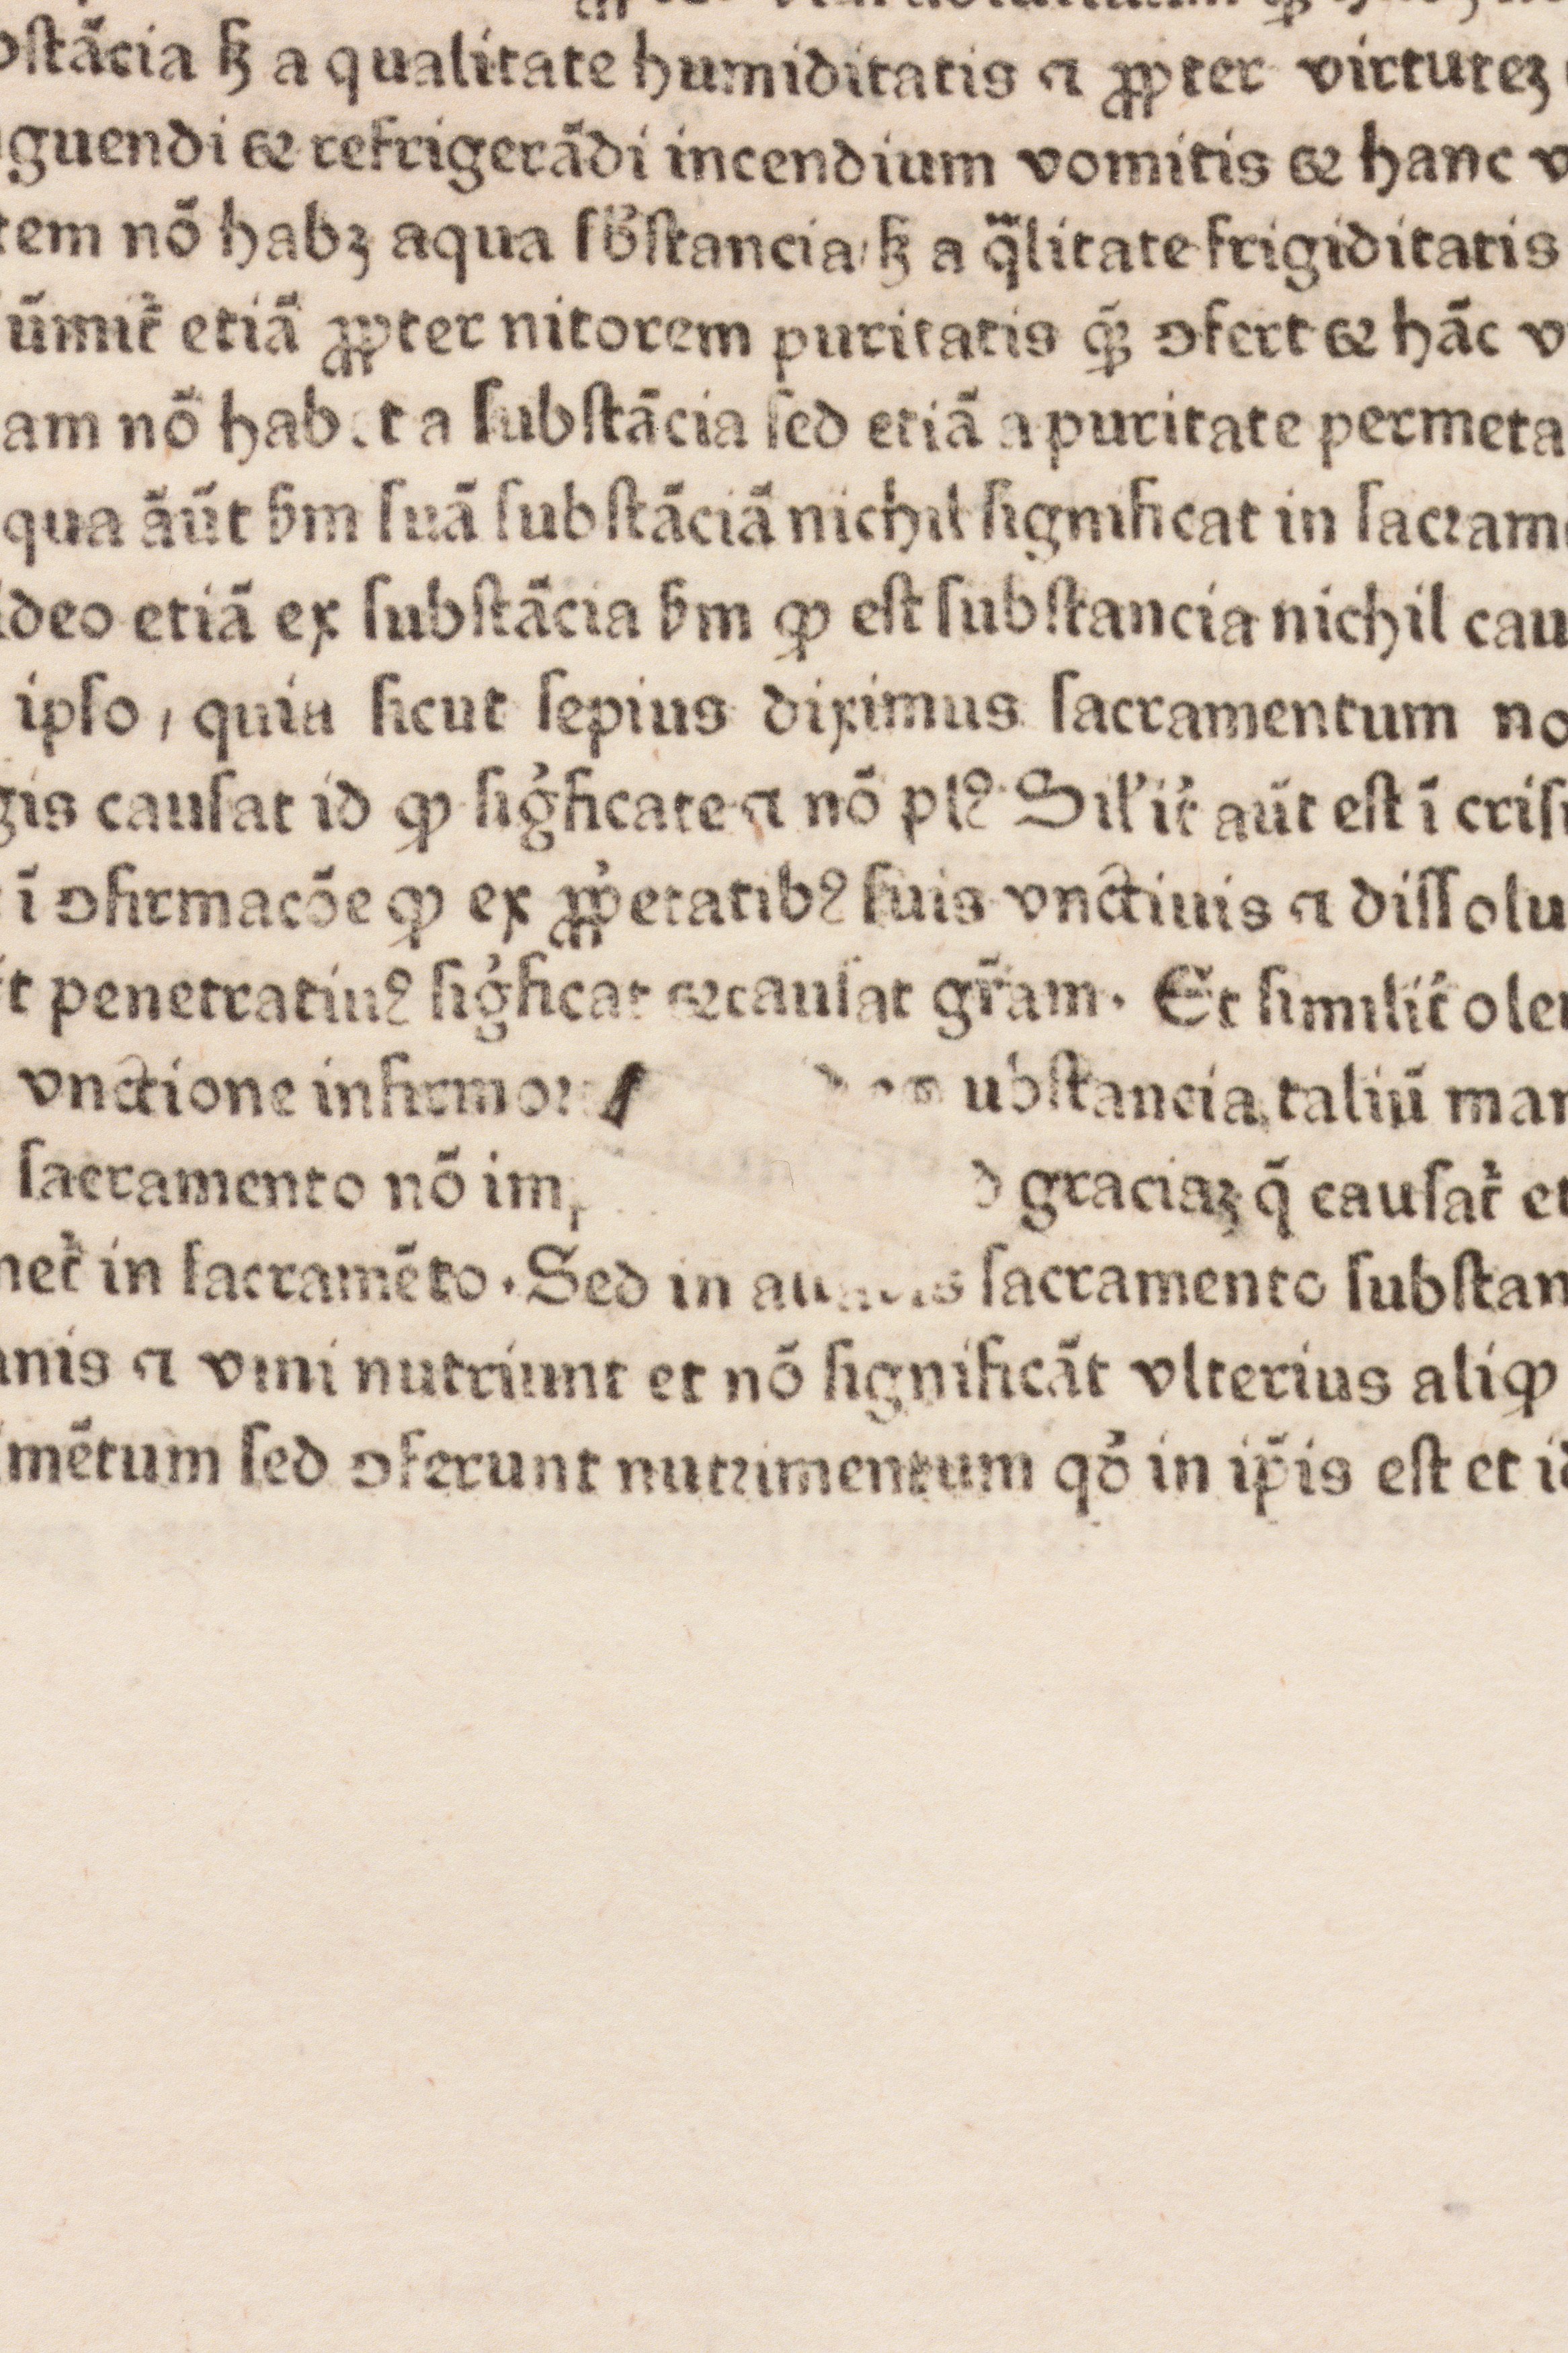 ſtãcia ſꝫ a qualitate humiditatis ⁊ ꝓpter virtuteꝫ
guendi & refrigerãdi incendium vomitis & hanc v
tem nõ habꝫ aqua ſb̾ſtancia / ſꝫ a q̃litate frigiditatis
ũmit᷑ etiã ꝓpter nitorem puritatis quē ɔfert & hãc v
am nõ hab t a ſubſtãcia ſed etiã a puritate permeta
qua aũt ẜm ſuã ſubſtãciã nichil ſignificat in ſacram
deo etiã ex ſubſtãcia ẜm ꝙ eſt ſubſtancia nichil cau
ipſo / quia ſicut ſepius diximus ſacramentum no
gis cauſat id ꝙ ſig̾ficate ⁊ nõ plꝰ Sil̾it᷑ aũt eſt ĩ criſ
ĩ ɔfirmacõe ꝙ ex ꝓp̾etatibꝰ ſuis vnctiuis ⁊ diſſolu
t penetratiuꝰ ſig̾ficat & cauſat gr̃am. Et ſimilit᷑ ole
vnctione infirmo ubſtancia taliũ mar
ſacramento nõ im graciaꝫ q̃ cauſat᷑ et
net᷑ in ſacramẽto. Sed in ſacramento ſubſtan
nis ⁊ vini nutriunt et nõ ſignificãt vlterius aliꝙ
mẽtum ſed ɔferunt nutrimentum qd̾ in ip̃is eſt et id